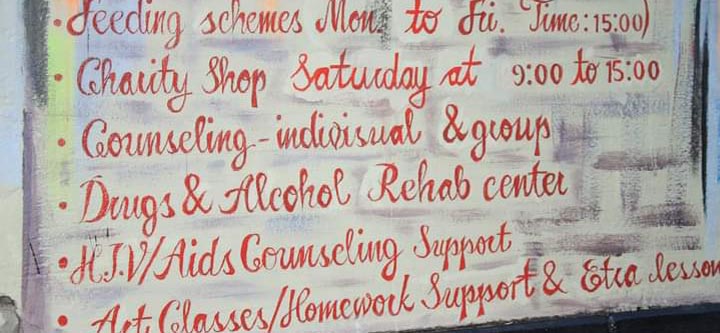 • Feeding schemes Mon. to Fri. Time: 15:00)
• Charity Shop Saturday at 9:00 to 15:00
• Counseling - indivisual & group
• Drugs & Alcohol Rehab center
• H.I.V/Aids Counseling Support
• Art Classes/Homework Support & Etra lesson